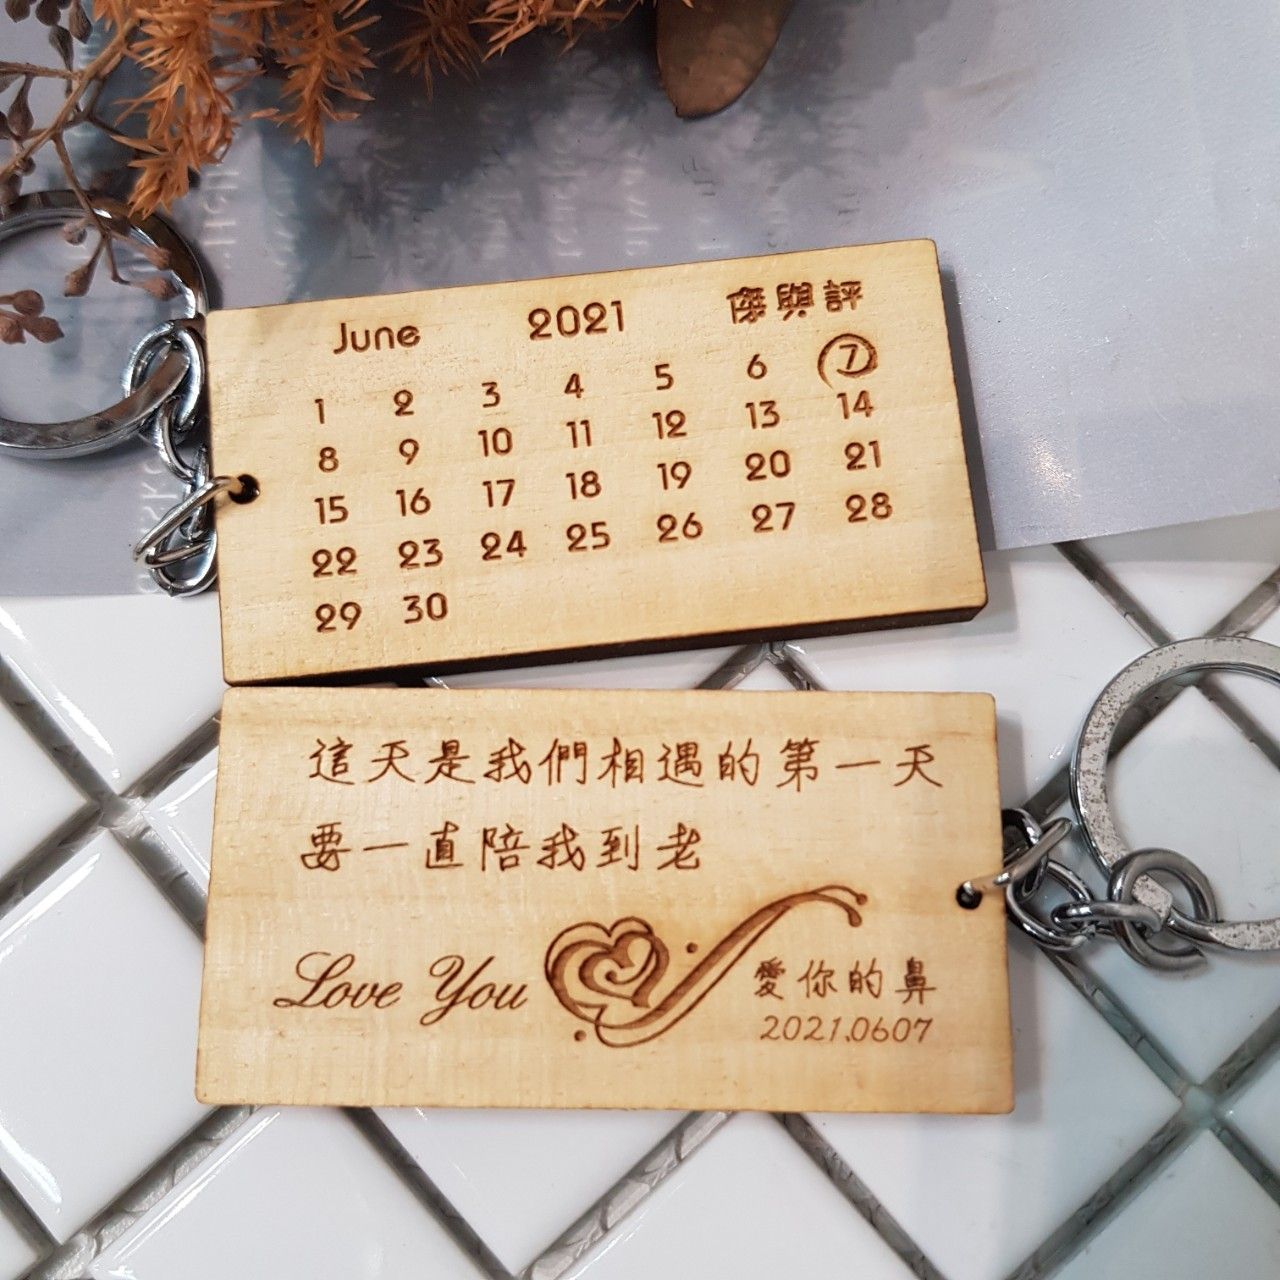 June 2021 傑與評
1 2 3 4 5 6 7
8 9 10 11 12 13 14
15 16 17 18 19 20 21
22 23 24 25 26 27 28
29 30
這天是我們相遇的第一天
要一直陪我到老
Love You
愛你的鼻
2021.0607